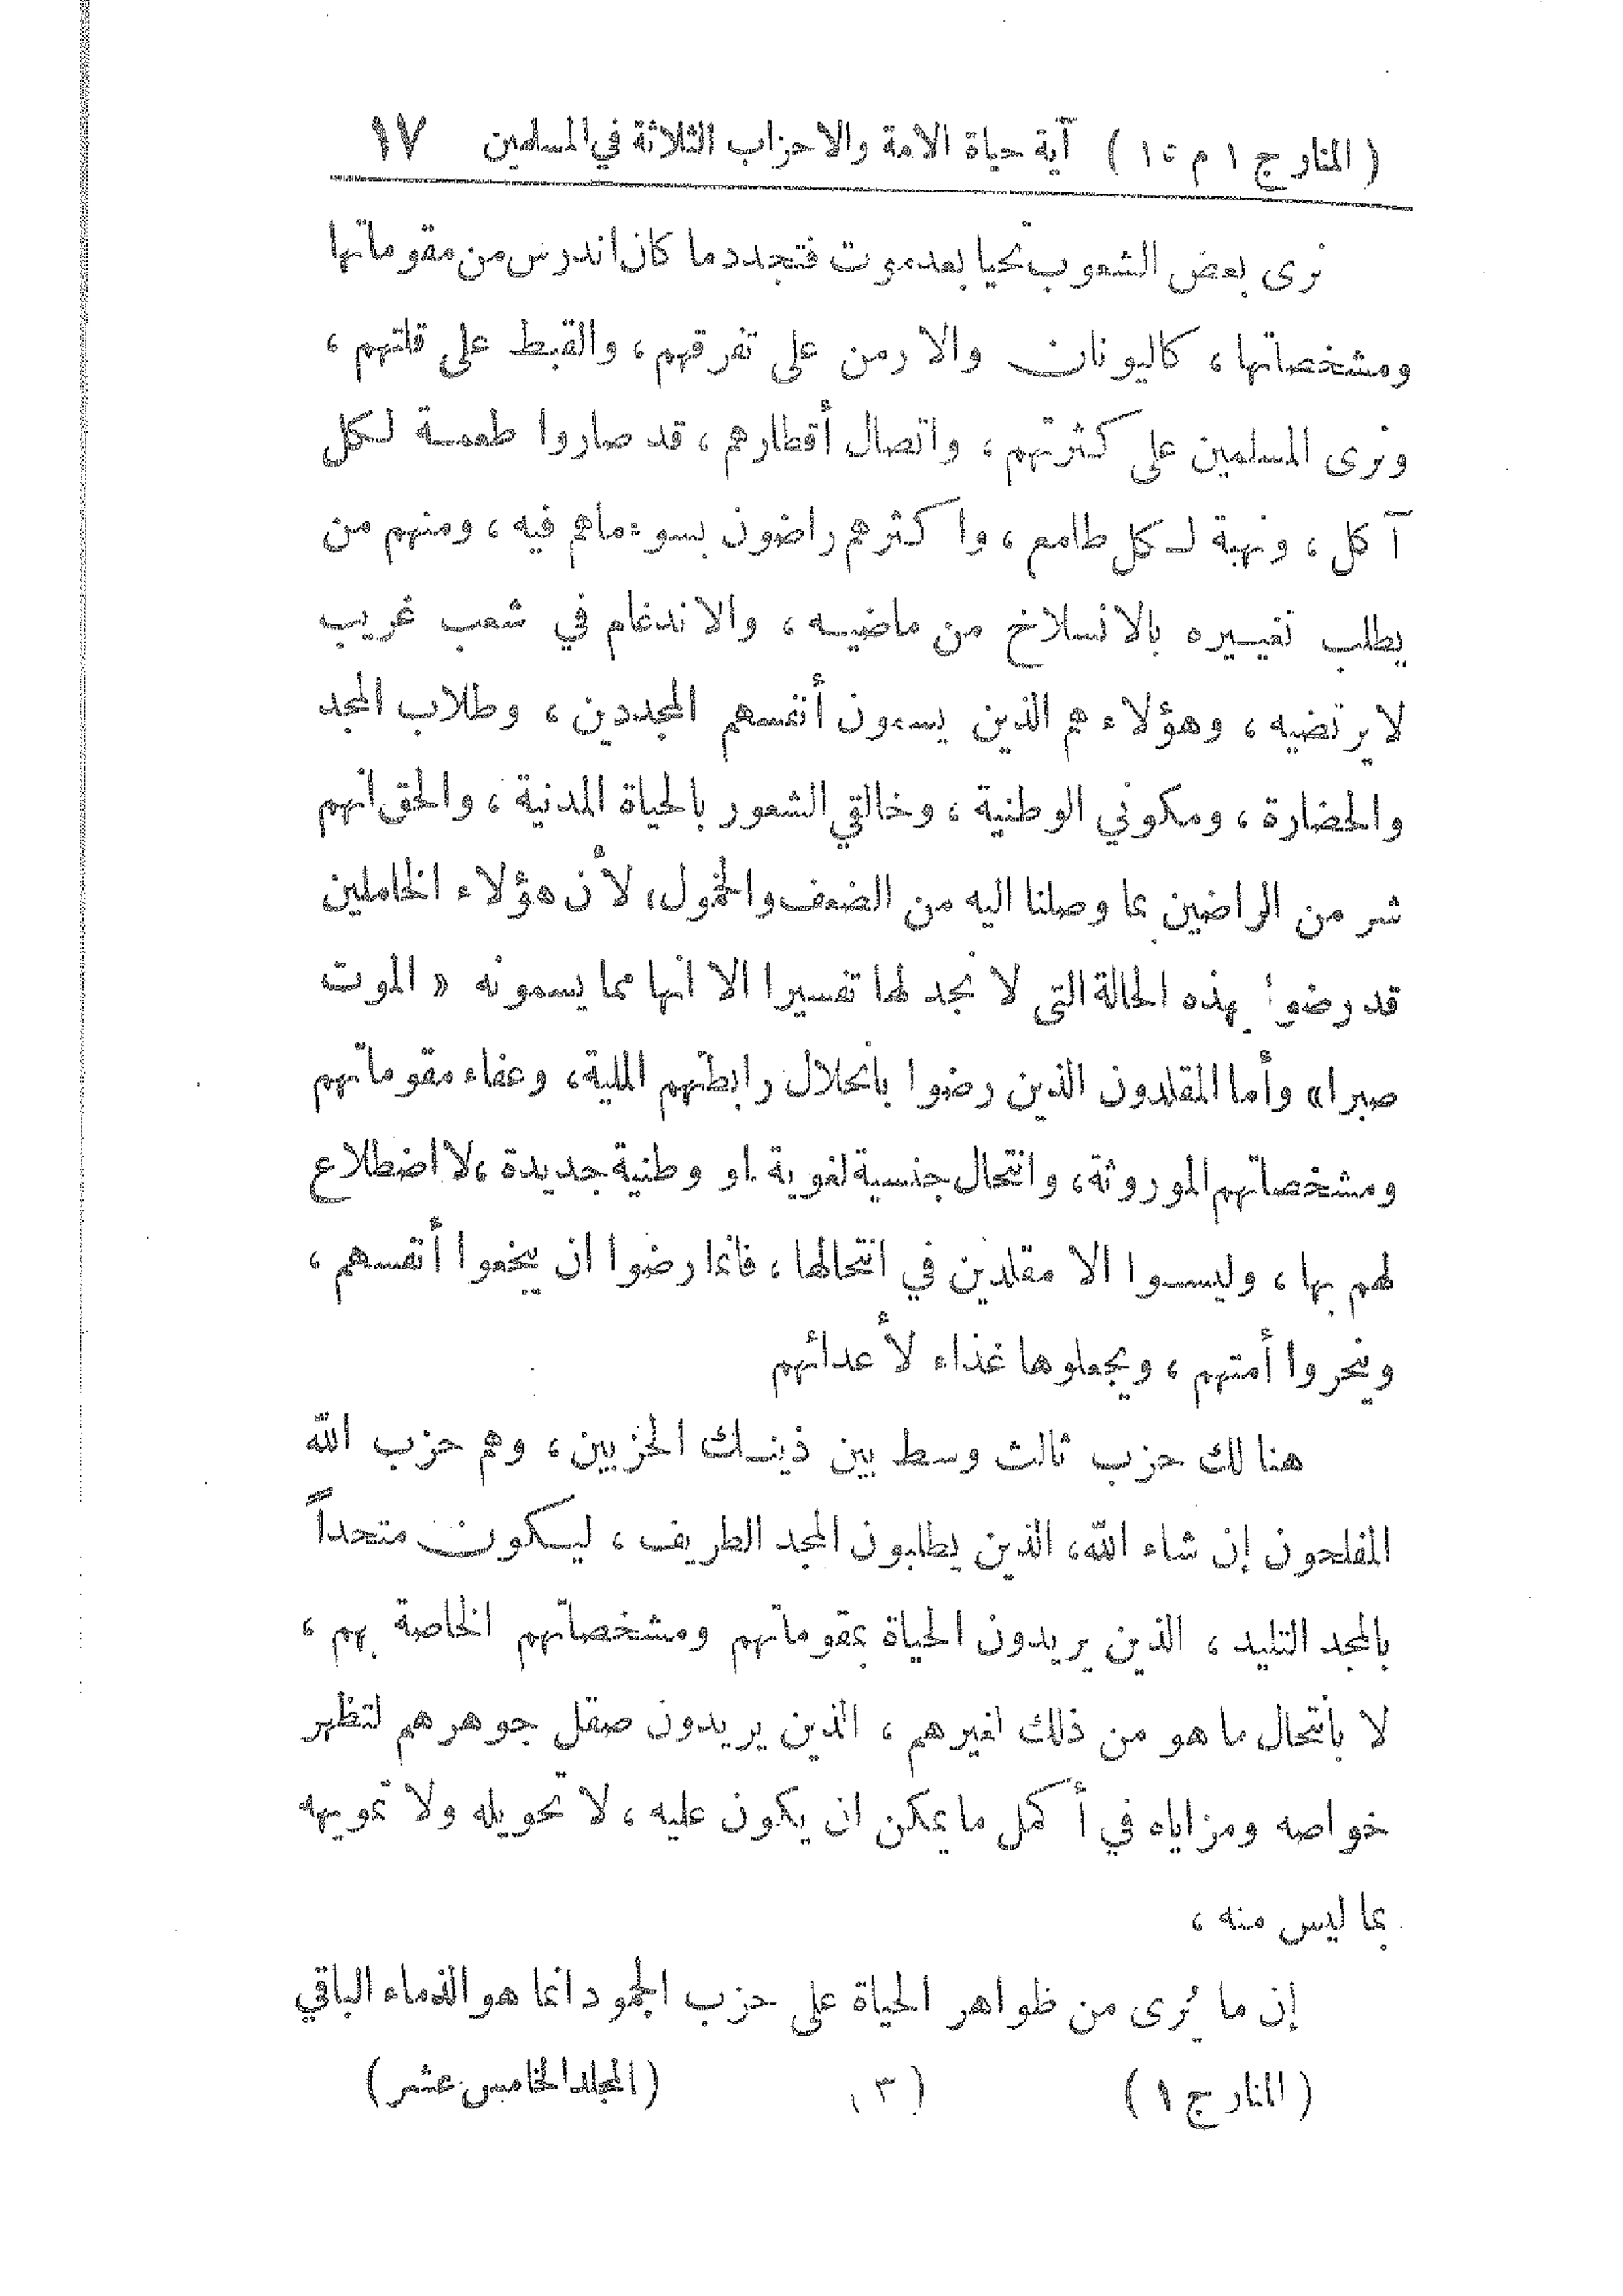 ( المنار ج ١ م ١٥ ) آية حياة الامة والاحزاب الثلاثة في المسلمين ١٧
نرى بعض الشعوب تحيا بعد موت فتجدد ما كان اندرس من مقوماتها
ومشخصاتها ، كاليونان والارمن على تفرقهم ، والقبط على قلتهم ،
ونرى المسلمين على كثرتهم ، واتصال أقطارهم ، قد صاروا طعمة لكل
آكل ، ونهبة لكل طامع ، واكثرهم راضون بسوء ماهم فيه ، ومنهم من
يطلب تغييره بالانسلاخ من ماضيه ، والاندغام في شعب غريب
لا يرتضيه ، وهؤلاء هم الذين يسمون أنفسهم المجددين ، وطلاب المجد
والحضارة ، ومكوني الوطنية ، وخالقي الشعور بالحياة المدنية ، والحق انهم
شر من الراضين بما وصلنا اليه من الضعف والخمول، لأن هؤلاء الخاملين
قد رضوا بهذه الحالة التي لا نجد لها تفسيرا الا انها مما يسمونه « الموت
صبرا» وأما المقلدون الذين رضوا بانحلال رابطتهم الملية، وعفاء مقوماتهم
ومشخصاتهم الموروثة، وانتحال جنسية لغوية او وطنية جديدة ،لا اضطلاع
لهم بها ، وليسوا الا مقلدين في انتحالها ، فانما رضوا ان يبخعوا أنفسهم ،
وينحروا أمتهم ، ويجعلوها غذاء لأعدائهم
هنالك حزب ثالث وسط بين ذينك الحزبين ، وهم حزب الله
المفلحون إن شاء الله، الذين يطلبون المجد الطريف ، ليكون متحداً
بالمجد التليد ، الذين يريدون الحياة بمقوماتهم ومشخصاتهم الخاصة بهم ،
لا بانتحال ما هو من ذلك لغيرهم ، الذين يريدون صقل جوهرهم لتظهر
خواصه ومزاياه في أكمل ما يمكن ان يكون عليه ، لا تحويله ولا تمويهه
بما ليس منه ،
إن ما يُرى من ظواهر الحياة على حزب الجمود انما هو الذماء الباقي
( المنار ج ١ ) ( ٣ ) (المجلد الخامس عشر)